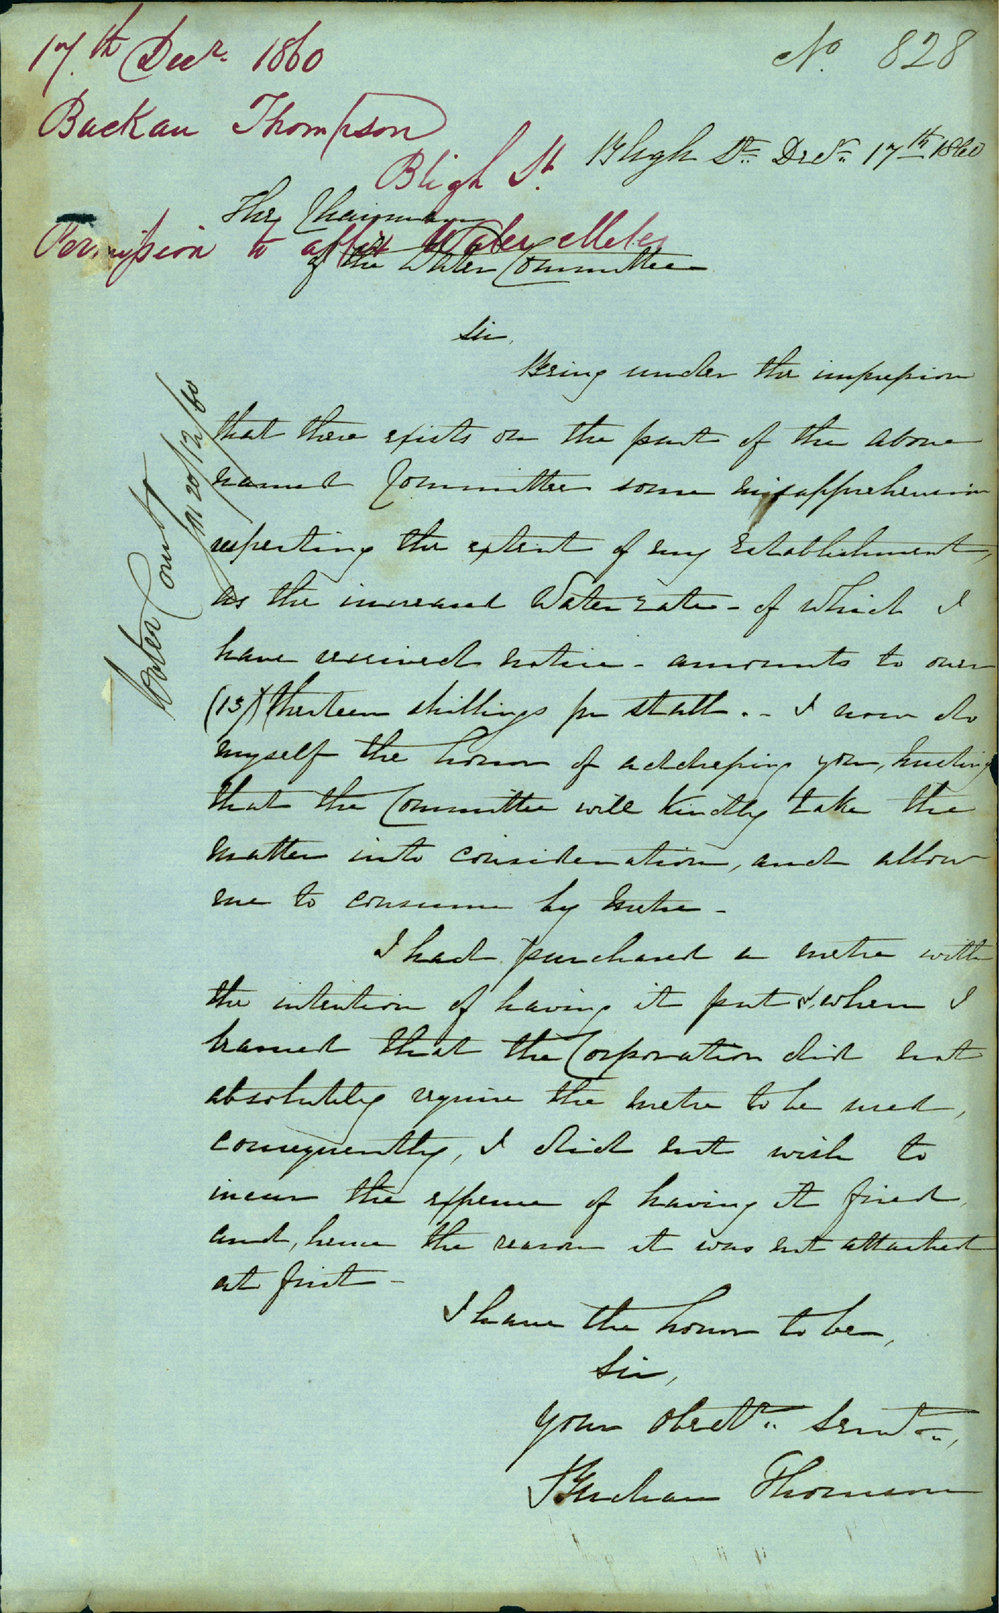 17th Decr. 1860
No. 828
Buckan Thompson
Bligh St.
Bligh St. Decr. 17th 1860
The Chairman
Permission to affix Water Meter
of the Water Committee
Sir,
Being under the impression
that there exists on the part of the above
named Committee some misapprehension
respecting the extent of my Establishment,
as the increased Water rate - of which I
have received notice - amounts to over
(13/) thirteen shillings per stall. - I now do
myself the honor of addressing you, trusting
that the Committee will kindly take the
matter into consideration, and allow
me to consume by metre -
I had purchased a metre with
the intention of having it put , when I
learned that the Corporation did not
absolutely require the metre to be used,
consequently, I did not wish to
incur the expense of having it fixed,
and, hence the reason it was not attached
at first -
I have the honor to be,
Sir,
Your Obedt. Servt.,
Buchan Thomson
Water Comtee
20/12/60